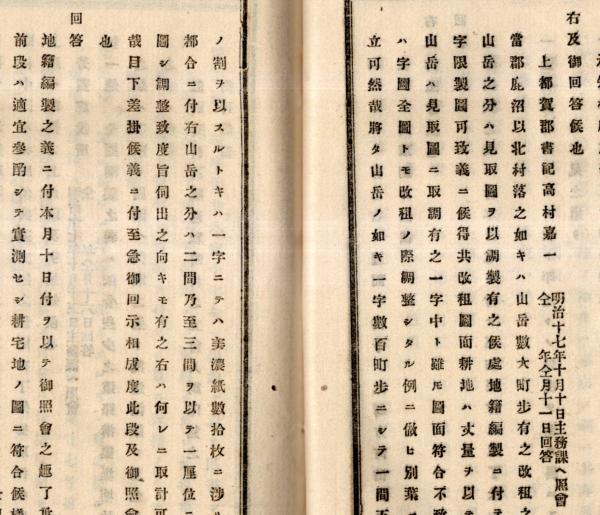 右及御回答候也
一上都賀郡書記高村嘉一
明治十七年十月十日主務課ヘ照會
仝年仝月十一日回答
當郡鹿沼以北村落之如キハ山岳數大町步有之改租之
山岳之分ハ見取圖ヲ以調製有之候處地籍編製ニ付テ
字限製圖可致義ニ候得共改租圖面耕地ハ丈量ヲ以テ
山岳ハ見取圖ニ取調有之一字中ト雖モ圖面符合不致
ハ字圖全圖トモ改租ノ際調整シタル例ニ倣ヒ別葉
立可然哉將タ山岳ノ如キ一字數百町步ニシテ一間
ノ割ヲ以スルトキハ一字ニテハ美濃紙數拾枚ニ涉
都合ニ付右山岳之分ハ二間乃至三間ヲ以テ一厘位ニ
圖シ調整致度旨伺出之向キモ有之右ハ何レニ取計可
哉目下差掛候義ニ付至急御回示相成度此段及御照會
也
回答
地籍編製之義ニ付本月十日付ヲ以テ御照會之趣了
前段ハ適宜參酌シテ實測セシ耕宅地ノ圖ニ符合候樣